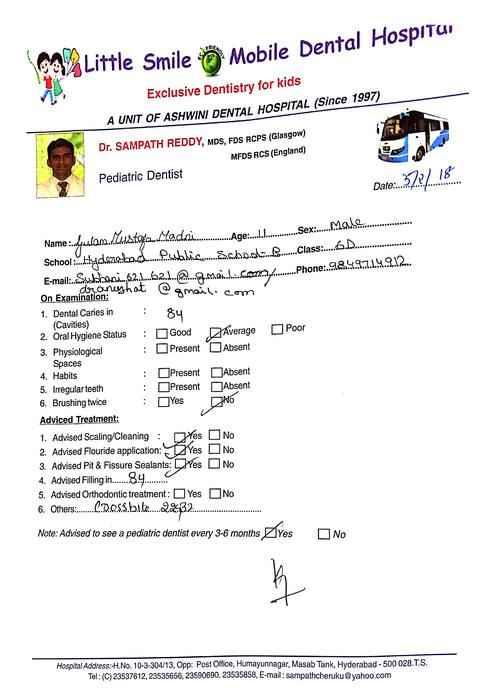 Little Smile Mobile Dental Hospital
Exclusive Dentistry for kids
A UNIT OF ASHWINI DENTAL HOSPITAL (Since 1997)
Dr. SAMPATH REDDY, MDS, FDS RCPS (Glasgow)
MFDS RCS (England)
Pediatric Dentist
Date:
Name: Mustafa Age: 11 Sex: Male
School: Hyderabad Public School-B Class: 6D
E-mail: Subhani.621 621@gmail.com/ Phone: 9849714912
@gmail.com
On Examination:
1. Dental Caries in (Cavities) : 84
2. Oral Hygiene Status : Good Average Poor
3. Physiological Spaces : Present Absent
4. Habits : Present Absent
5. Irregular teeth : Present Absent
6. Brushing twice : Yes No
Adviced Treatment:
1. Advised Scaling/Cleaning : Yes No
2. Advised Flouride application: Yes No
3. Advised Pit & Fissure Sealants: Yes No
4. Advised Filling in 84
5. Advised Orthodontic treatment : Yes No
6. Others: Crossbite
Note: Advised to see a pediatric dentist every 3-6 months Yes No
Hospital Address:-H.No. 10-3-304/13, Opp: Post Office, Humayunnagar, Masab Tank, Hyderabad - 500 028.T.S.
Tel: (C) 23537612, 23535656, 23590690, 23535858, E-mail: sampathcheruku@yahoo.com